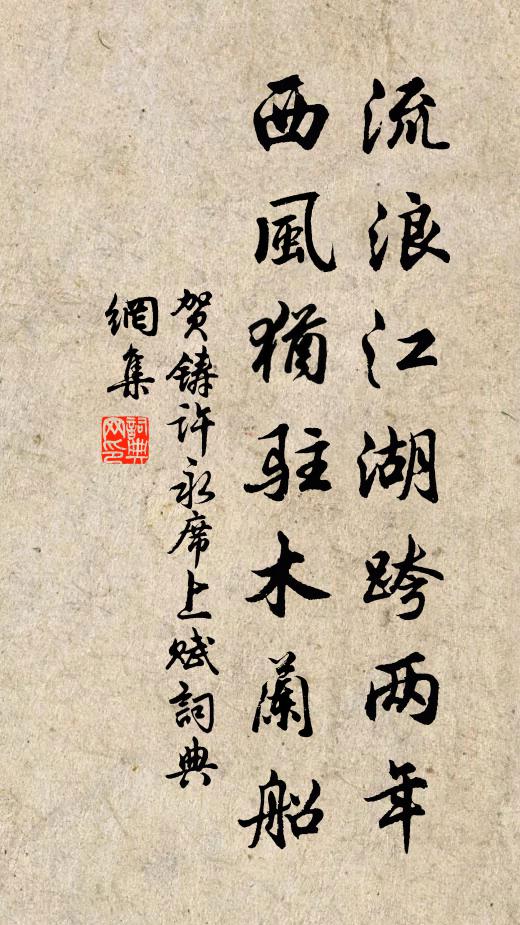 流浪江湖跨两年
西風猶駐木蘭船
贺鑄许永席上赋詞典
網集
詞典
网印